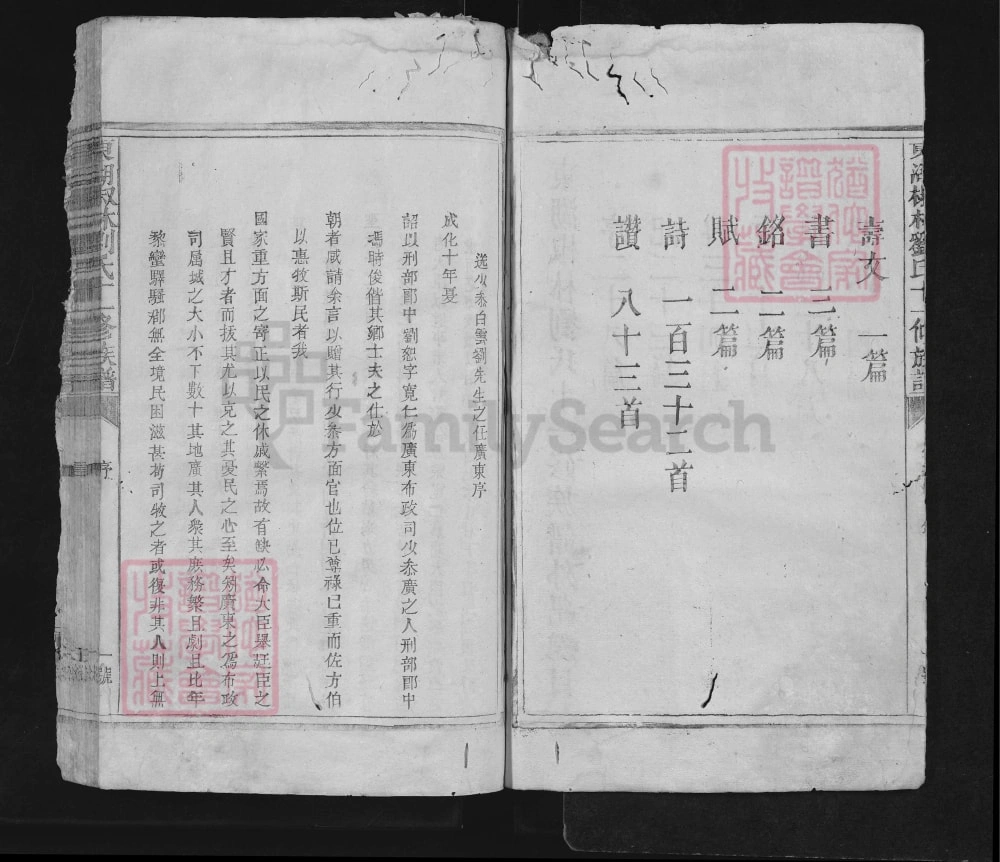 壽文 一篇
書 三篇
銘 二篇
賦 二篇
詩 一百三十二首
讚 八十三首
送少叅白雲劉先生之任廣東序
成化十年夏
詔以刑部郎中劉恕字寬仁爲廣東布政司少叅廣之人刑部郎中
馮時俊偕其鄉士夫之仕於
朝者咸請余言以贈其行少叅方面官也位已尊祿已重而佐方伯
以惠牧斯民者我
國家重方面之寄正以民之休戚繫焉故有缺必命大臣舉廷臣之
賢且才者而拔其尤以克之其憂民之心至矣矧廣東之爲布政
司屬城之大小不下數十其地廣其人衆其庶務繁且劇且比年
黎蠻驛騷郡無全境民困滋甚苟司牧之者或復非其人則上無
序
FamilySearch